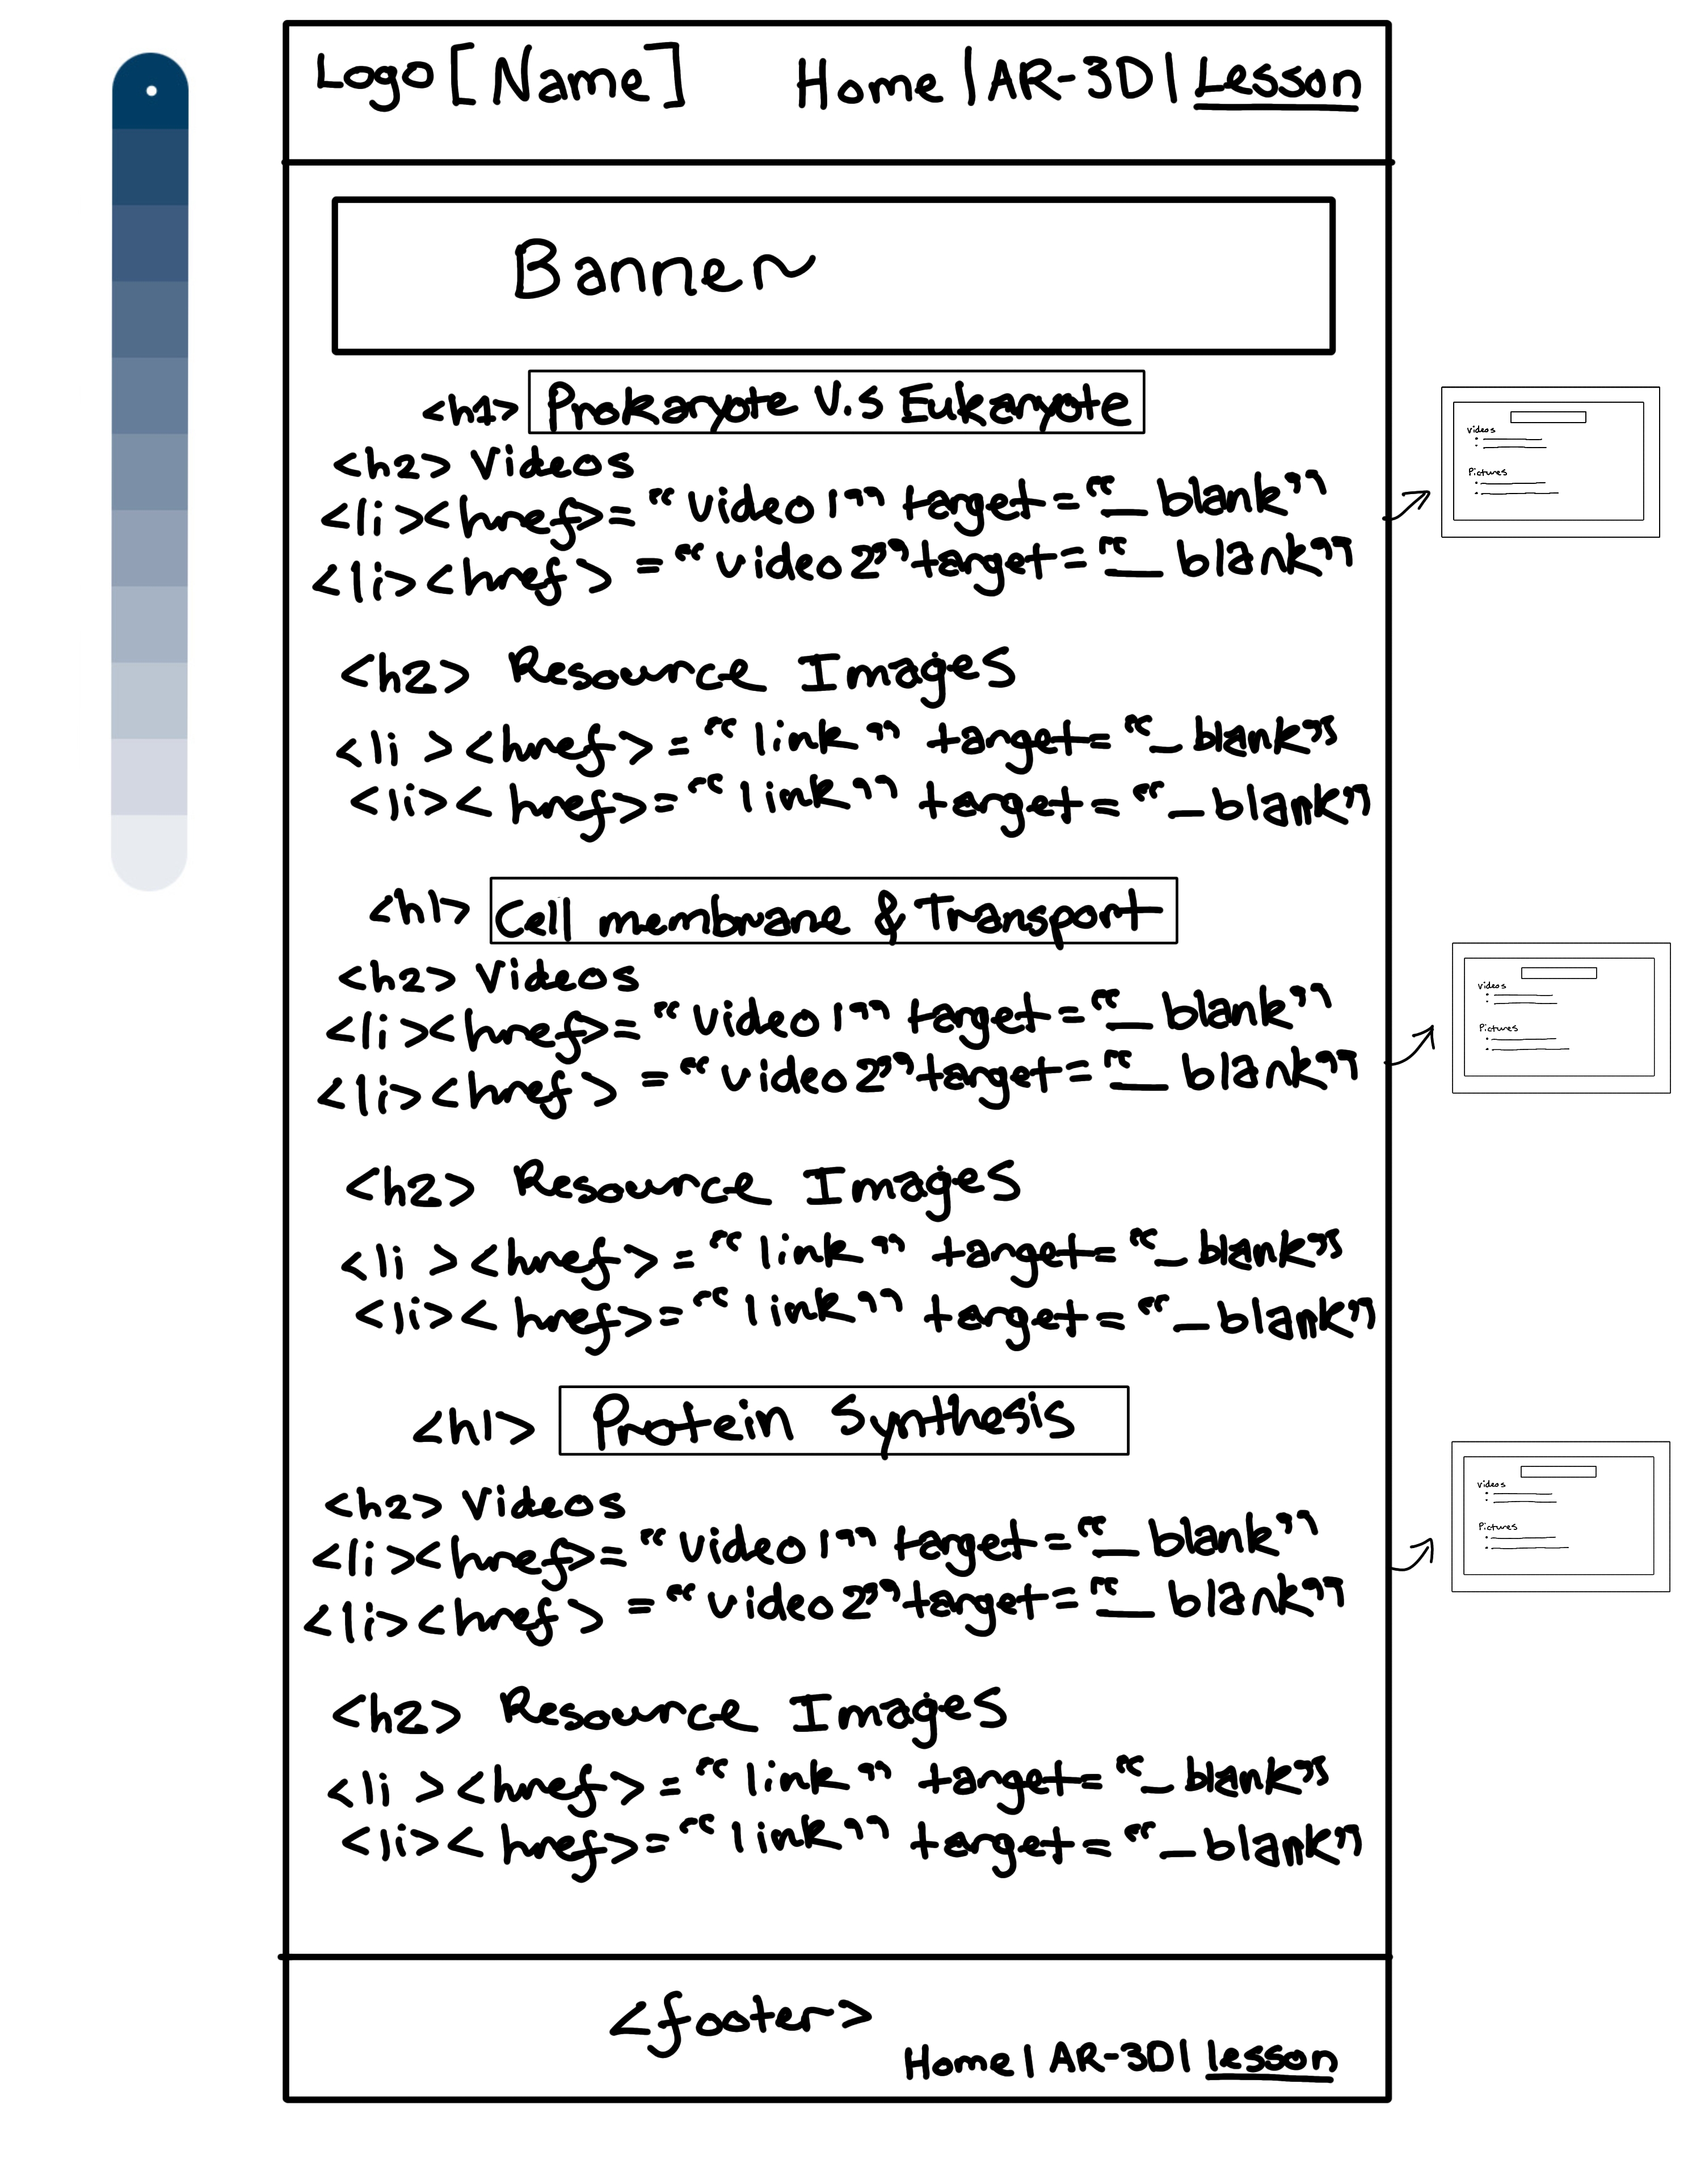 Logo [Name] Home | AR-3D | Lesson
Banner
<h1> Prokaryote V.S Eukaryote
<h2> Videos
<li><href>= “video 1” target = “_ blank”
<li><href> = “video 2” target = “_ blank”
<h2> Resource Images
<li><href> = “link” target= “_ blank”
<li>< href>= “link” target = “_ blank”
<h1> Cell membrane & Transport
<h2> Videos
<li><href>= “video 1” target = “_ blank”
<li><href> = “video 2” target = “_ blank”
<h2> Resource Images
<li><href> = “link” target= “_ blank”
<li>< href>= “link” target = “_ blank”
<h1> Protein Synthesis
<h2> Videos
<li><href>= “video 1” target = “_ blank”
<li><href> = “video 2” target = “_ blank”
<h2> Resource Images
<li><href> = “link” target= “_ blank”
<li>< href>= “link” target = “_ blank”
<footer>
Home | AR-3D | lesson
Videos
Pictures
Videos
Pictures
Videos
Pictures